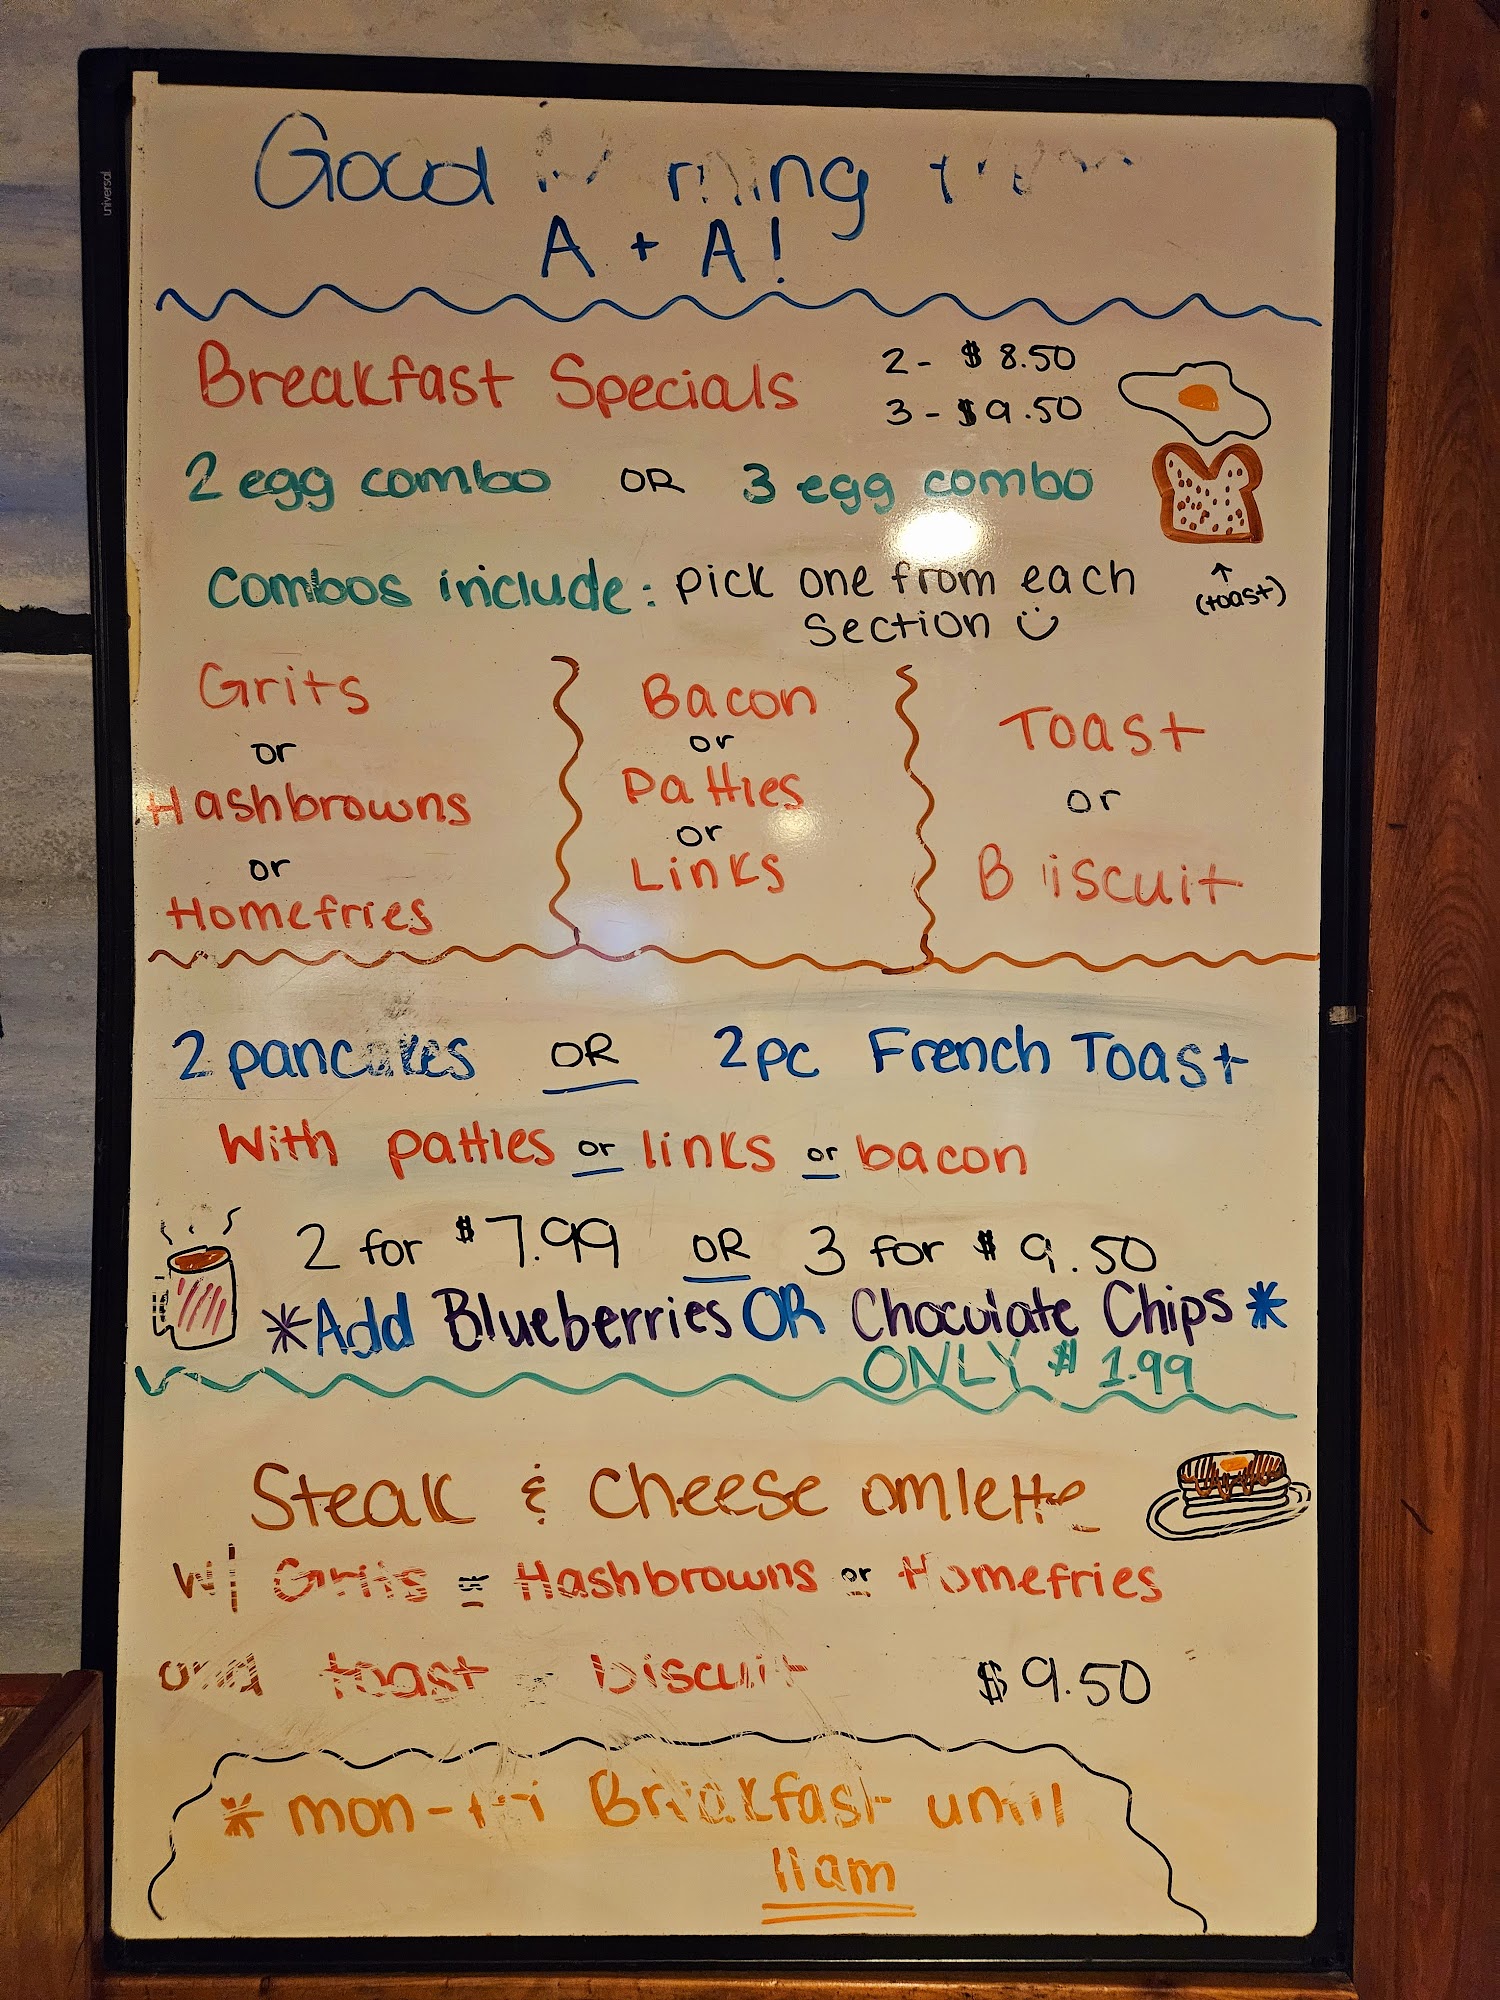 universal
Good Morning from
A + A!
Breakfast Specials
2 - $ 8.50
3 - $ 9.50
2 egg combo OR 3 egg combo
Combos include: pick one from each
section
(toast)
Grits
or
Hashbrowns
or
Homefries
Bacon
or
Patties
or
Links
Toast
or
Biscuit
2 pancakes OR 2pc French Toast
With patties or links or bacon
2 for $7.99 OR 3 for $9.50
*Add Blueberries OR Chocolate Chips*
ONLY $1.99
Steak & Cheese omlette
w/ Grits or Hashbrowns or Homefries
and toast biscuit $9.50
* mon-fri Breakfast until
11am